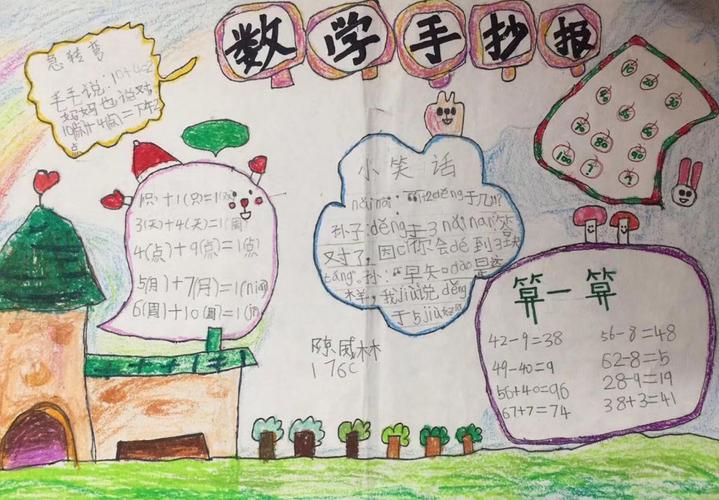 数学手抄报
急转弯
毛毛说:10+4=2
妈妈也说对
10点+4点=下午2
点
1(只)+1(只)=1(双)
3(天)+4(天)=1(周)
4(点)+9(点)=1(点)
5(月)+7(月)=1(nián)
6(周)+10(周)=1
小笑话
nǎinai:"1+2děng于几?"
孙子:děng于3 nǎinai:答
对了,因cǐ你会dé到3块
táng。孙:"早知dào是这
样,我jiù说děng
于5jiù好
算一算
42-9=38
49-40=9
56+40=96
67+7=74
56-8=48
62-8=5
28-9=19
38+3=41
10
20
30
80
90
100
?
?
陈威林
176C